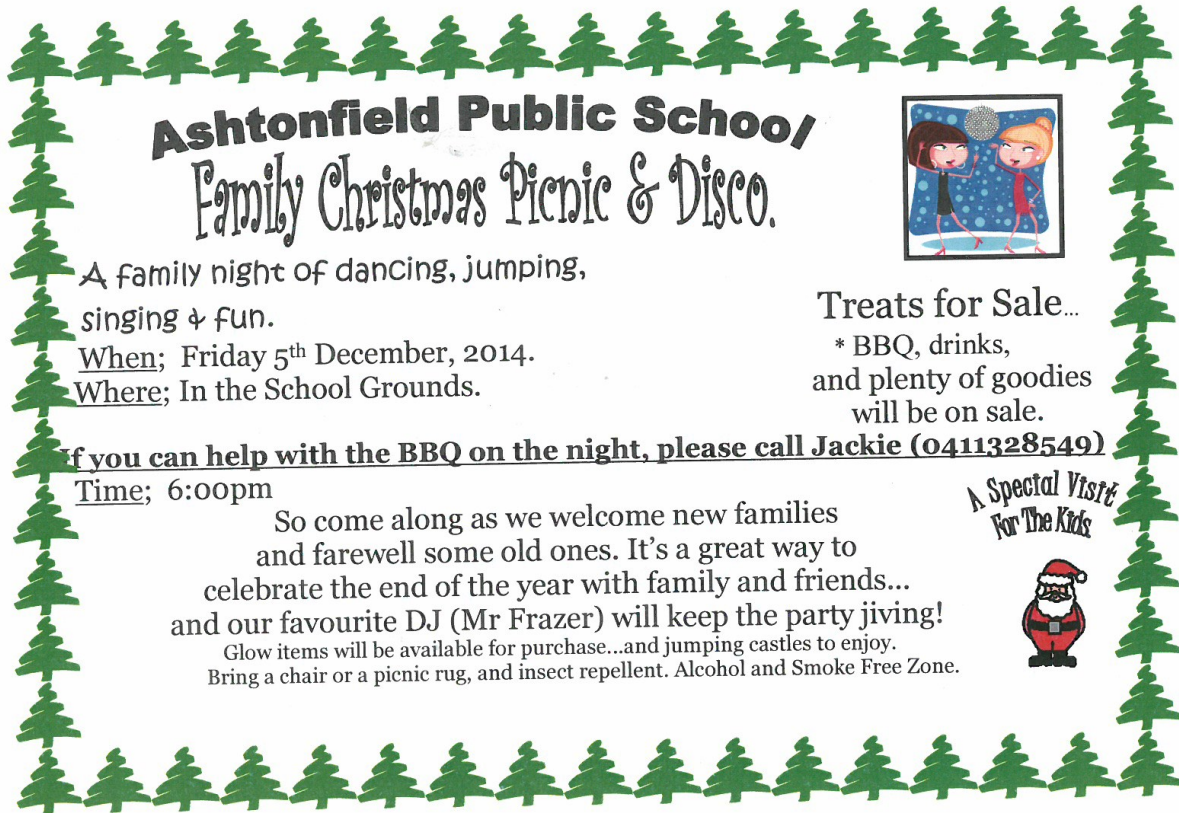 Ashtonfield Public School
Family Christmas Picnic & Disco.
A family night of dancing, jumping,
singing & fun.
When; Friday 5th December, 2014.
Where; In the School Grounds.
Treats for Sale...
* BBQ, drinks,
and plenty of goodies
will be on sale.
If you can help with the BBQ on the night, please call Jackie (0411328549)
Time; 6:00pm
A Special Visit
For The Kids.
So come along as we welcome new families
and farewell some old ones. It's a great way to
celebrate the end of the year with family and friends...
and our favourite DJ (Mr Frazer) will keep the party jiving!
Glow items will be available for purchase...and jumping castles to enjoy.
Bring a chair or a picnic rug, and insect repellent. Alcohol and Smoke Free Zone.